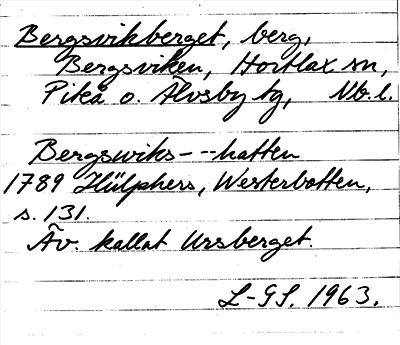 Bergsvikberget, berg,
Bergsviken, Hortlax sn,
Piteå o. Älvsby tg, Nb. l.
Bergswiks---hatten
1789 Hülphers, Westerbotten,
s. 131.
Äv. kallat Ursberget.
L-GS. 1963.